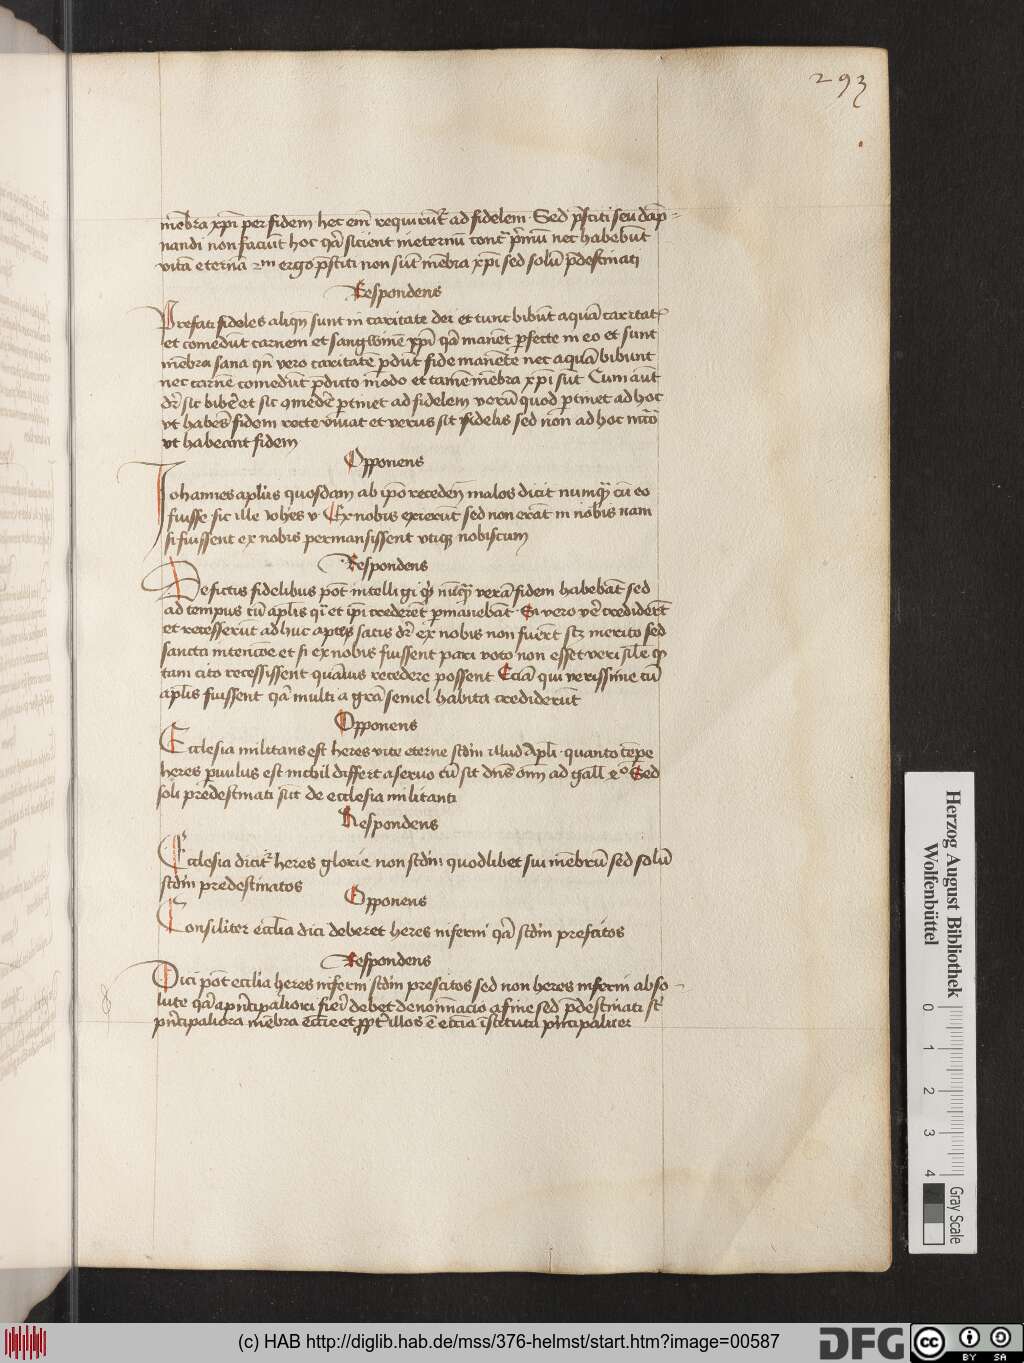 293
membra xpi per fidem hec em requirutr ad fidelem Sed psciti seu dap=
nandi non faciut hoc qr sicient ineternu nec habebut
vita eterna ergo psciti non sut mebra xpi sed solu pdestinati
Respondens
Prefati fideles aliqn sunt in caritate dei et tunc bibut aqua caritatis
et comedut carnem et sangwinem xpi qr manet pfecte in eo et sunt
mebra sana qn vero caritate pdut fide manete nec aqua bibunt
nec carne comedut pdicto modo et tame mebra xpi sut Cum aut
dr sic bibe et sic comede ptinet ad fidelem veru quod ptinet ad hoc
vt habes fidem recte vivat et verus sit fidelis sed non ad hoc
vt habeant fidem
Opponens
Johannes aplus quosdam ab ipo receden malos dicit numq cu eo
fuisse sic ille Johes Ex nobis exierut sed non erat in nobis nam
si fuissent ex nobis permansissent vtiq nobiscum
Respondens
De fictis fidelibus pot intelligi q nuq vera fidem habebat sed
ad tempus cu aplis qi et ipi crederet pmanebant Si vero ve credidert
et recesserut adhuc satis dr ex nobis non fuert merito sed
sancta intencoe et si ex nobis fuissent pari voto non esset veri sile q
tam cito recessissent quavis recedere possent Ecia qui verissime cu
aplis fuissent qr multi a gra semel habita crediderut
Opponens
Ecclesia militans est heres vite eterne scdm illud Apli quanto tepe
heres pvulus est nichil differt a servo cu sit dns oim ad gall Sed
soli predestinati sut de ecclesia militanti
Respondens
Ecclesia dicitr heres glorie non scdm quodlibet sui mebru sed solu
scdm predestinatos
Opponens
Consiliter ecclia dici deberet heres inferni qr scdm prescitos
Respondens
Dici pot ecclia heres inferni scdm prescitos sed non heres inferni abso
lute qr a pncipaliori fieri debet denominacio a fine sed pdestinati st
pncipaliora mebra eccie et ppt illos e eccia istituta pncipaliter
Herzog August Bibliothek
Wolfenbüttel
0 1 2 3 4
Gray Scale
(c) HAB http://diglib.hab.de/mss/376-helmst/start.htm?image=00587
DFG
cc BY SA